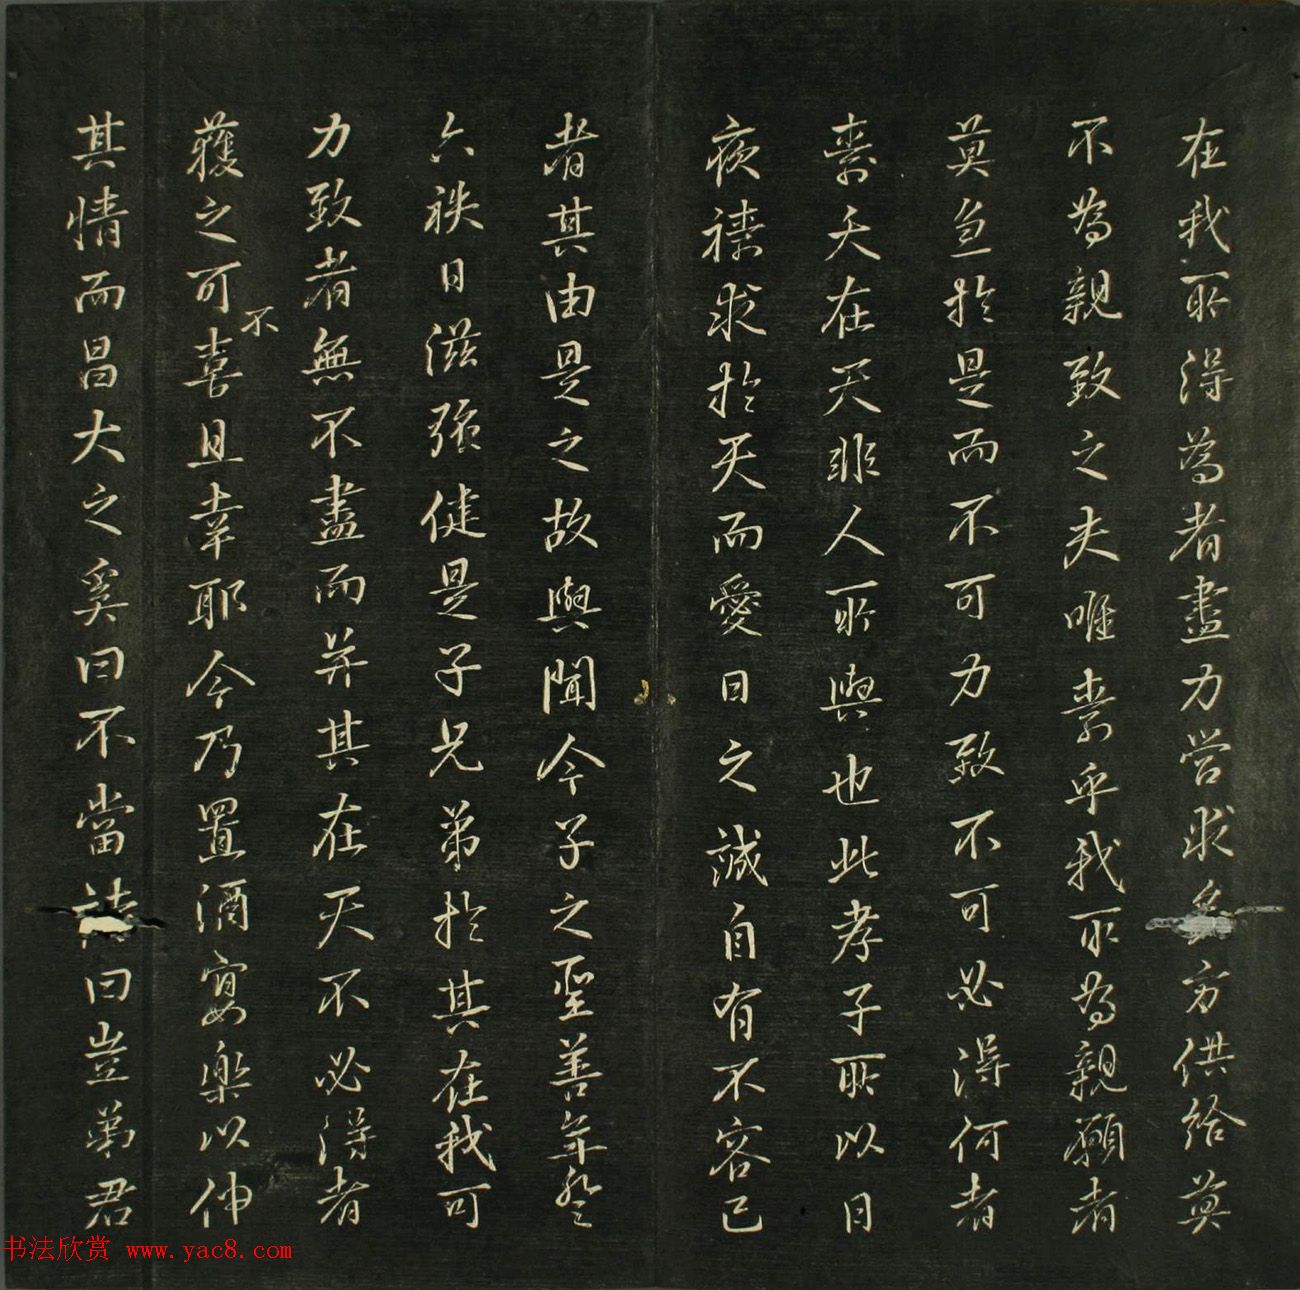 在我所得為者盡力営求多方供給莫
不為親致之夫唯壽乎我所為親願者
莫急於是而不可力致不可必得何者
壽夭在天非人所與也此孝子所以日
夜禱求於天而愛日之誠自有不容已
者其由是之故與聞今子之聖善年登
六袟日滋强健是子兄弟於其在我可
力致者無不盡而并其在天不必得者
獲之可不喜且幸耶今乃置酒宴樂以伸
其情而昌大之奚曰不當詩曰豈弟君
书法欣赏 www.yac8.com